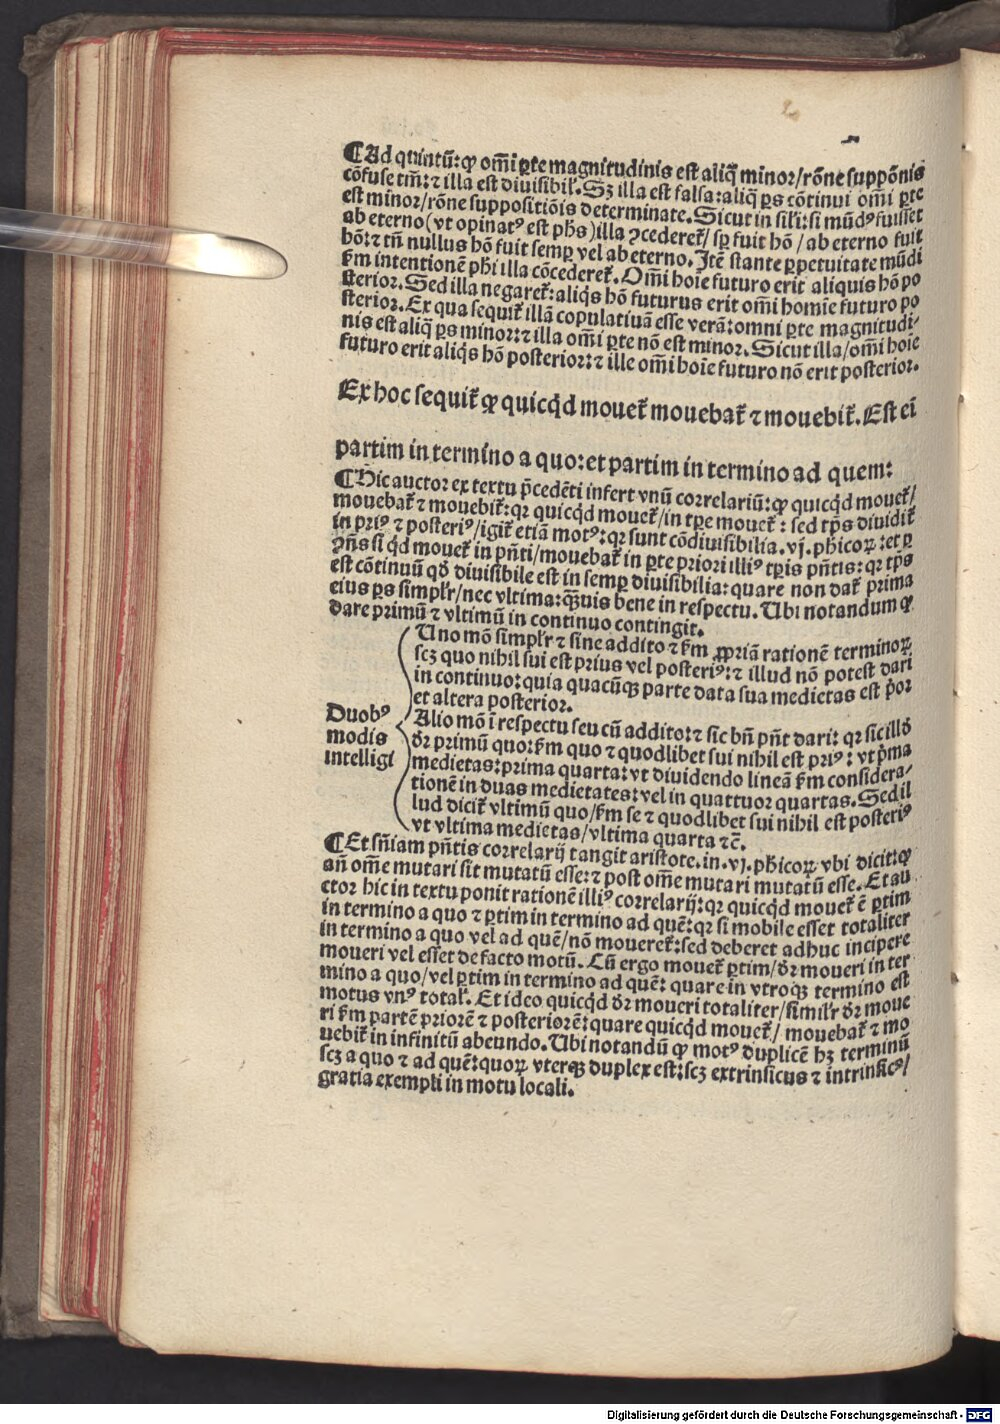 ¶Ad quintū: ꝙ om̄i ꝑte magnitudinis est aliq̄ minor/rōne suppōnis
cōfuse tm̄: ⁊ illa est diuisibil'. Sꝫ illa est falsa: aliq̄ ꝑs cōtinui om̄i ꝑte
est minor/rōne suppositiōis determinate. Sicut in sil'i: si mūdꝰ fuisset
ab eterno (vt opinatꝰ est phs) illa ꝯcederet̄/ sꝑ fuit hō / ab eterno fuit
hō: ⁊ tn̄ nullus hō fuit semꝑ vel ab eterno. Itē stante ꝑpetuitate mūdi
ẜm intentionē phi illa cōcederet̄. Om̄i hoīe futuro erit aliquis hō po
sterior. Sed illa negaret̄: aliq̇s hō futurus erit om̄i homīe futuro po
sterior. Ex qua sequit̄ illā copulatiuā esse verā: omni ꝑte magnitudi-
nis est aliq̄ ꝑs minor: ⁊ illa om̄i ꝑte nō est minor. Sicut illa/om̄i hoīe
futuro erit aliq̇s hō posterior: ⁊ ille om̄i hoīe futuro nō erit posterior.
Ex hoc sequit̄ ꝙ quicq̇d mouet̄ mouebat̄ ⁊ mouebit̄. Est eī
partim in termino a quo: et partim in termino ad quem:
¶Hic auctor ex textu p̄cedēti infert vnū correlariū: ꝙ quicq̇d mouet̄/
mouebat̄ ⁊ mouebit̄: qꝛ quicq̇d mouet̄/in tꝑe mouet̄: sed tp̄s diuidit̄
in priꝰ ⁊ posteriꝰ/igit̄ etiā motꝰ: qꝛ sunt cōdiuisibilia. vj. phicoꝝ: et ꝑ
ꝯn̄s si q̇d mouet̄ in pn̄ti/mouebat̄ in ꝑte priori illiꝰ tꝑis pn̄tis: qꝛ tp̄s
est cōtinuū qḋ diuisibile est in semꝑ diuisibilia: quare non dat̄ prima
eius ꝑs simpl'r/nec vltima: q̄uis bene in respectu. Ubi notandum ꝙ
dare primū ⁊ vltimū in continuo contingit.
Duobꝰ
modis
intelligi
Uno mō simpl'r ⁊ sine addito ⁊ ẜm ꝓpriā rationē terminoꝝ
scꝫ quo nihil sui est prius vel posteriꝰ: ⁊ illud nō potest dari
in continuo: quia quacūqꝫ parte data sua medietas est p̄or
et altera posterior.
Alio mō ī respectu seu cū addito: ⁊ sic bn̄ pn̄t dari: qꝛ sic illḋ
ḋr primū quo: ẜm quo ⁊ quodlibet sui nihil est priꝰ: vt p̄ma
medietas: prima quarta: vt diuidendo lineā ẜm considera-
tionē in duas medietates: vel in quattuor quartas. Sed il
lud dicit̄ vltimū quo/ẜm se ⁊ quodlibet sui nihil est posteriꝰ
vt vltima medietas/vltima quarta ⁊c̄.
¶Et sn̄iam pn̄tis correlarij tangit aristote. in. vj. phicoꝝ vbi dicit: ꝙ
añ om̄e mutari sit mutatū esse: ⁊ post om̄e mutari mutatū esse. Et au
ctor hic in textu ponit rationē illiꝰ correlarij: qꝛ quicq̇d mouet̄ ē ꝑtim
in termino a quo ⁊ ꝑtim in termino ad quē: qꝛ si mobile esset totaliter
in termino a quo vel ad quē/nō moueret̄: sed deberet adhuc incipere
moueri vel esset de facto motū. Cū ergo mouet̄ ꝑtim/ḋr moueri in ter
mino a quo/vel ꝑtim in termino ad quē: quare in vtroqꝫ termino est
motus vnꝰ total'. Et ideo quicq̇d ḋr moueri totaliter/simil'r ḋr moue
ri ẜm partē priorē ⁊ posteriorē: quare quicq̇d mouet̄/ mouebat̄ ⁊ mo
uebit̄ in infinitū abeundo. Ubi notandū ꝙ motꝰ duplicē hꝫ terminū
scꝫ a quo ⁊ ad quē: quoꝝ vterqꝫ duplex est: scꝫ extrinsicus ⁊ intrinsicꝰ/
gratia exempli in motu locali.
Digitalisierung gefördert durch die Deutsche Forschungsgemeinschaft - DFG